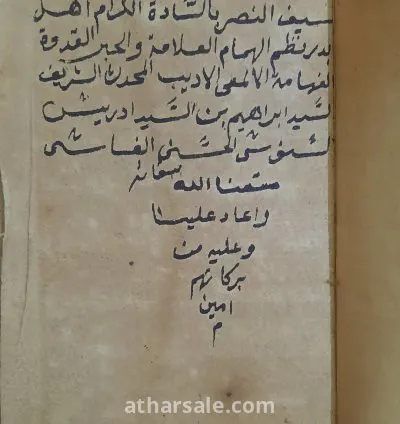 سيف النصر بالسادة الكرام أهل
بدر نظم الهمام العلامة والحبر القدوة
الفهامة الالمعى الاديب المحدث الشريف
السيد ابراهيم بن السيد ادريس
السنوسى الحسنى الفاسى
متعنا الله ببقائه
واعاد علينا
وعليه من
بركاتهم
امين
م
atharsale.com